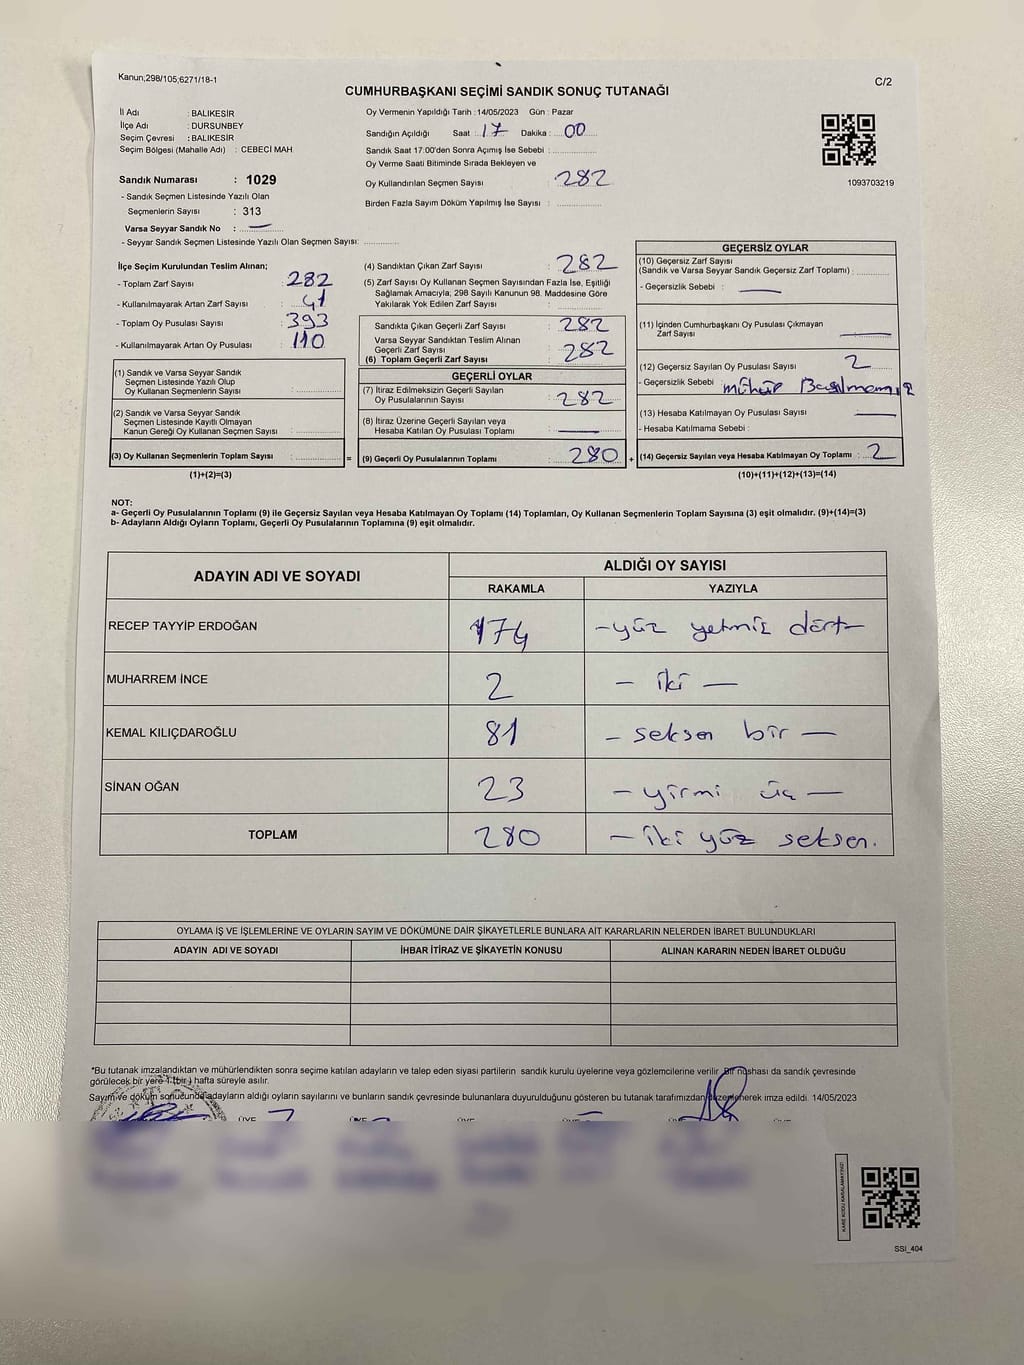 Kanun;298/105;6271/18-1
C/2
CUMHURBAŞKANI SEÇİMİ SANDIK SONUÇ TUTANAĞI
İl Adı : BALIKESİR
İlçe Adı : DURSUNBEY
Seçim Çevresi : BALIKESİR
Seçim Bölgesi (Mahalle Adı) : CEBECİ MAH.
Sandık Numarası : 1029
- Sandık Seçmen Listesinde Yazılı Olan
Seçmenlerin Sayısı : 313
Varsa Seyyar Sandık No : —
- Seyyar Sandık Seçmen Listesinde Yazılı Olan Seçmen Sayısı:
Oy Vermenin Yapıldığı Tarih : 14/05/2023 Gün : Pazar
Sandığın Açıldığı Saat : 17 Dakika : 00
Sandık Saat 17:00'den Sonra Açımış İse Sebebi :
Oy Verme Saati Bitiminde Sırada Bekleyen ve
Oy Kullandırılan Seçmen Sayısı : 282
Birden Fazla Sayım Döküm Yapılmış İse Sayısı :
1093703219
İlçe Seçim Kurulundan Teslim Alınan;
- Toplam Zarf Sayısı : 282
- Kullanılmayarak Artan Zarf Sayısı : 41
- Toplam Oy Pusulası Sayısı : 393
- Kullanılmayarak Artan Oy Pusulası : 110
(1) Sandık ve Varsa Seyyar Sandık
Seçmen Listesinde Yazılı Olup
Oy Kullanan Seçmenlerin Sayısı :
(2) Sandık ve Varsa Seyyar Sandık
Seçmen Listesinde Kayıtlı Olmayan
Kanun Gereği Oy Kullanan Seçmen Sayısı :
(3) Oy Kullanan Seçmenlerin Toplam Sayısı : =
(1)+(2)=(3)
(4) Sandıktan Çıkan Zarf Sayısı : 282
(5) Zarf Sayısı Oy Kullanan Seçmen Sayısından Fazla İse, Eşitliği
Sağlamak Amacıyla, 298 Sayılı Kanunun 98. Maddesine Göre
Yakılarak Yok Edilen Zarf Sayısı :
Sandıkta Çıkan Geçerli Zarf Sayısı : 282
Varsa Seyyar Sandıktan Teslim Alınan
Geçerli Zarf Sayısı :
(6) Toplam Geçerli Zarf Sayısı : 282
GEÇERLİ OYLAR
(7) İtiraz Edilmeksizin Geçerli Sayılan
Oy Pusulalarının Sayısı : 282
(8) İtiraz Üzerine Geçerli Sayılan veya
Hesaba Katılan Oy Pusulası Toplamı : —
(9) Geçerli Oy Pusulalarının Toplamı : 280 +
GEÇERSİZ OYLAR
(10) Geçersiz Zarf Sayısı
(Sandık ve Varsa Seyyar Sandık Geçersiz Zarf Toplamı) :
- Geçersizlik Sebebi : —
(11) İçinden Cumhurbaşkanı Oy Pusulası Çıkmayan
Zarf Sayısı —
(12) Geçersiz Sayılan Oy Pusulası Sayısı : 2
- Geçersizlik Sebebi : mühür Basılmamış
(13) Hesaba Katılmayan Oy Pusulası Sayısı : —
- Hesaba Katılmama Sebebi :
(14) Geçersiz Sayılan veya Hesaba Katılmayan Oy Toplamı : 2
(10)+(11)+(12)+(13)=(14)
NOT:
a- Geçerli Oy Pusulalarının Toplamı (9) ile Geçersiz Sayılan veya Hesaba Katılmayan Oy Toplamı (14) Toplamları, Oy Kullanan Seçmenlerin Toplam Sayısına (3) eşit olmalıdır. (9)+(14)=(3)
b- Adayların Aldığı Oyların Toplamı, Geçerli Oy Pusulalarının Toplamına (9) eşit olmalıdır.
ADAYIN ADI VE SOYADI ALDIĞI OY SAYISI
RAKAMLA YAZIYLA
RECEP TAYYİP ERDOĞAN 174 -yüz yetmiş dört-
MUHARREM İNCE 2 - iki -
KEMAL KILIÇDAROĞLU 81 - seksen bir -
SİNAN OĞAN 23 - yirmi üç -
TOPLAM 280 - iki yüz seksen.
OYLAMA İŞ VE İŞLEMLERİNE VE OYLARIN SAYIM VE DÖKÜMÜNE DAİR ŞİKAYETLERLE BUNLARA AİT KARARLARIN NELERDEN İBARET BULUNDUKLARI
ADAYIN ADI VE SOYADI İHBAR İTİRAZ VE ŞİKAYETİN KONUSU ALINAN KARARIN NEDEN İBARET OLDUĞU
*Bu tutanak imzalandıktan ve mühürlendikten sonra seçime katılan adayların ve talep eden siyasi partilerin sandık kurulu üyelerine veya gözlemcilerine verilir. Bir nüshası da sandık çevresinde
görülecek bir yere 1 (bir) hafta süreyle asılır.
Sayım ve döküm sonucunda adayların aldığı oyların sayılarını ve bunların sandık çevresinde bulunanlara duyurulduğunu gösteren bu tutanak tarafımızdan düzenlenerek imza edildi. 14/05/2023
ÜYE ÜYE ÜYE ÜYE ÜYE ÜYE
KARE KODU KARALAMAYINIZ!
SSI_404